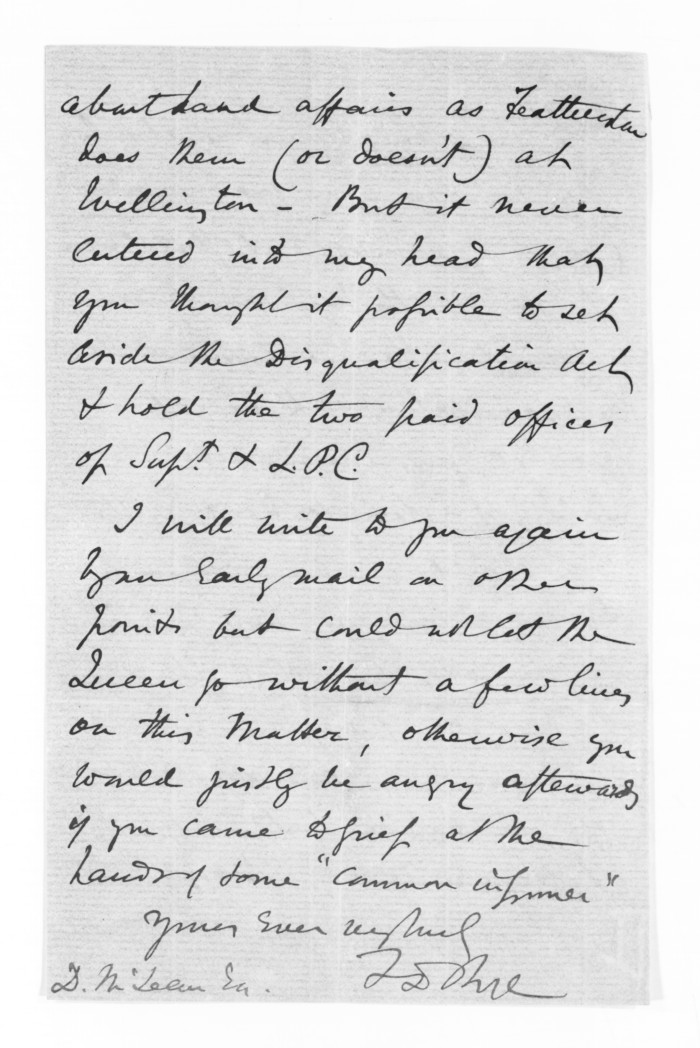 about land affairs as Featherston
does them (or doesn't) at
Wellington - But it never
entered into my head that
you thought it possible to set
aside the Disqualification Act
& hold the two paid offices
of Supt. & L.P.C.
I will write to you again
by an Early mail on other
points but could not let the
Queen go without a few lines
on this Matter, otherwise you
would justly be angry afterwards
if you came to grief at the
hands of some "Common informer"
Yours Ever
F D
D. McLean Esq.